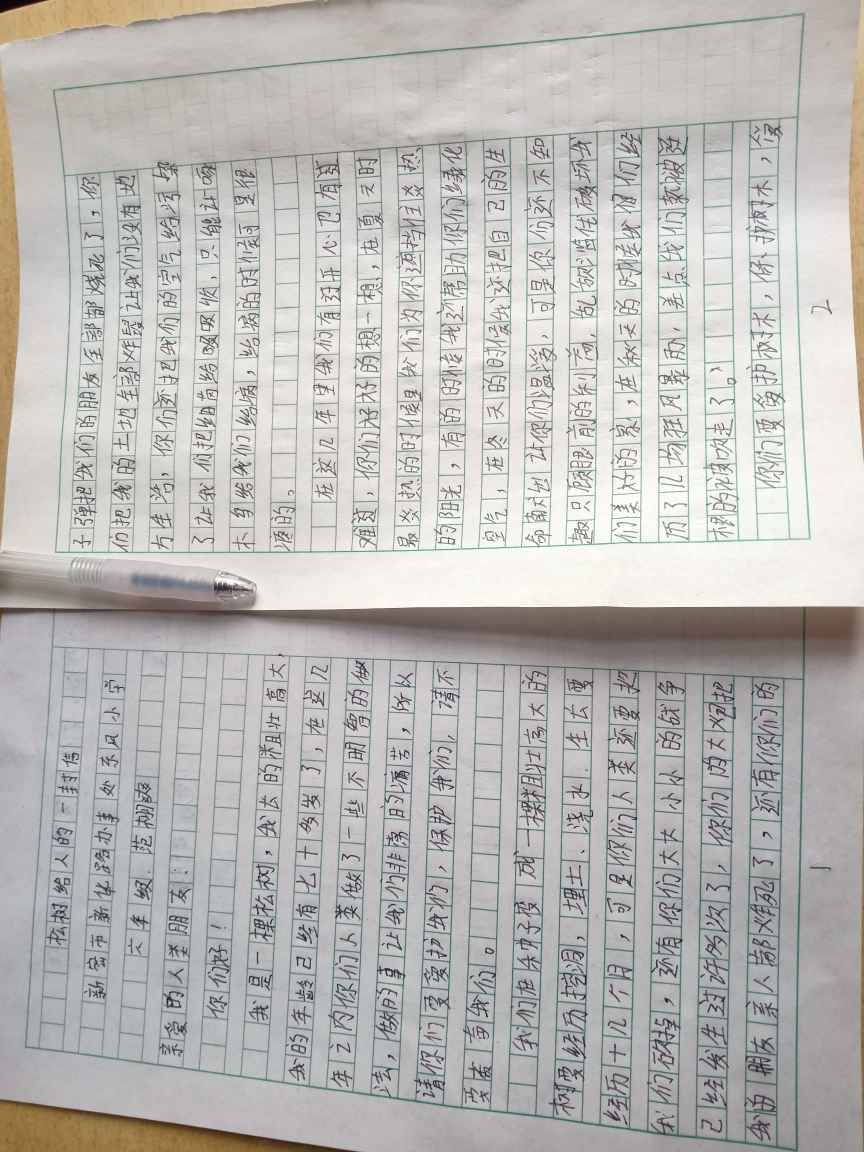 松树给人的一封信
新安市新华路办事处东风小学
六年级 范栩
亲爱的人类朋友:
你们好!
我是一棵松树,我长的粗壮高大,
我的年龄已经有七十多岁了,在这几
年之内你们人类做了一些不明智的做
法,做的事让我们非常的痛苦,所以
请你们要爱护我们,保护我们,请不
要砍我们。
我们在杀中子变成一棵粗壮高大的
树要经历挖洞,埋土、浇水.生长要
经历十几个月,可是你们人类还要把
我们砍掉,还有你们大大小小的战争
已经发生过许多次了,你们的大炮把
我的朋友亲人都炸死了,还有你们的
1
子弹把我们的朋友全部都烧死了,你
们把我的土地全部炸裂让我们没有地
方生活,你们还把我们的空气给污染
了让我们把细菌给吸收,只能让啄
木鸟给我们治病,治病的时候可是很
痛的。
在这几年里我们有过开心也有过
难过,你们好好的想一想,在夏天时
最炎热的时候是我们为你遮挡住炎热
的阳光,有的时候我还帮助你们绿化
空气,在冬天的时候我还把自己的生
命献出让你们温暖,可是你们还不知
趣只顾眼前的利益,乱砍滥伐破坏我
们美好的家,在秋天的时候我们经
历了几场狂风暴雨,差点我们就被连
根的被吹走了。
你们要爱护树木,保护树木,爱
2